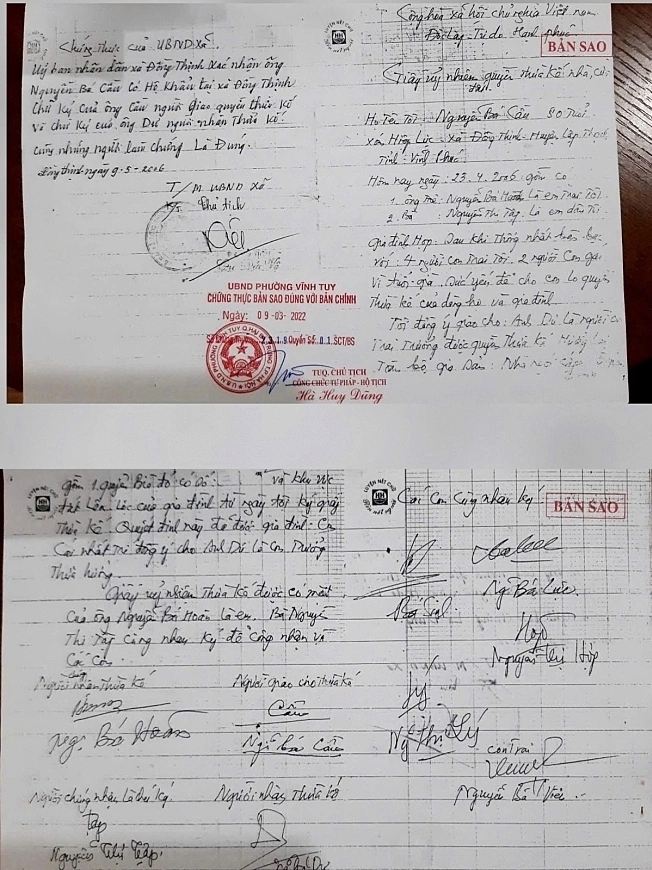 Chứng thực của UBND xã.
Uỷ ban nhân dân xã Đồng Thịnh xác nhận ông
Nguyễn Bá Cầu có Hộ Khẩu tại xã Đồng Thịnh
chữ ký của ông Cầu người giao quyền thừa kế
và chữ ký của ông Dư người nhận thừa kế.
cùng những người làm chứng Là Đúng.
Đồng Thịnh ngày 9-5-2006
T/M UBND xã
Chủ tịch
UBND PHƯỜNG VĨNH TUY
CHỨNG THỰC BẢN SAO ĐÚNG VỚI BẢN CHÍNH
Ngày: 09-03-2022
Quyển Số: 01 SCT/BS
TUQ. CHỦ TỊCH
CÔNG CHỨC TƯ PHÁP - HỘ TỊCH
Hà Huy Dũng
Cộng hòa xã hội chủ nghĩa Việt nam
Độc lập - Tự do - Hạnh phúc
BẢN SAO
Giấy uỷ nhiệm quyền thừa kế nhà,
Họ tên tôi: Nguyễn Bá Cầu 80 Tuổi
xóm Hiệp Lực - xã Đồng Thịnh - Huyện Lập Thạch
Tỉnh Vĩnh Phúc
Hôm nay ngày: 23.4.2006 gồm có
1. ông: Nguyễn Bá Hoàn là em Trai Tôi
2. Bà: Nguyễn Thị Tập là em dâu Tôi
gia đình Họp. Sau khi Thống nhất
với 4 người con Trai Tôi. 2 người con gái
Vì tuổi già. Sức yếu để cho con lo quyền
Thừa kế của dòng họ và gia đình
Tôi đồng ý giao cho: Anh Dư là người con
Trai Trưởng được quyền Thừa kế Hưởng
Toàn bộ gia sản: Nhà
gồm 1 quyển Bìa đỏ có và khu vực
đất của gia đình từ ngày tôi ký giấy
Thừa kế. Quyết định này để được gia đình. Con
Cái nhất trí đồng ý cho Anh Dư là con Trưởng
Thừa hưởng
Giấy uỷ nhiệm Thừa kế được có mặt
của ông Nguyễn Bá Hoàn là em. Bà Nguyễn
Thị Tập cùng nhau ký để công nhận và
Các con.
Người giao cho thừa kế
Cầu
Ng Bá Hoàn
Ng Bá Cầu
Người nhận Thừa kế
Tập
Nguyễn Thị Tập
Các con cùng nhau ký
BẢN SAO
Ng Bá Lực
Hợp
Nguyễn Thị Hợp
Ng Thị Lý
con trai
Nguyễn Bá Viên